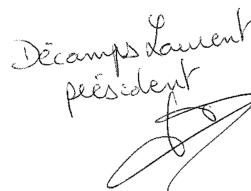 Décamps Laurent
président